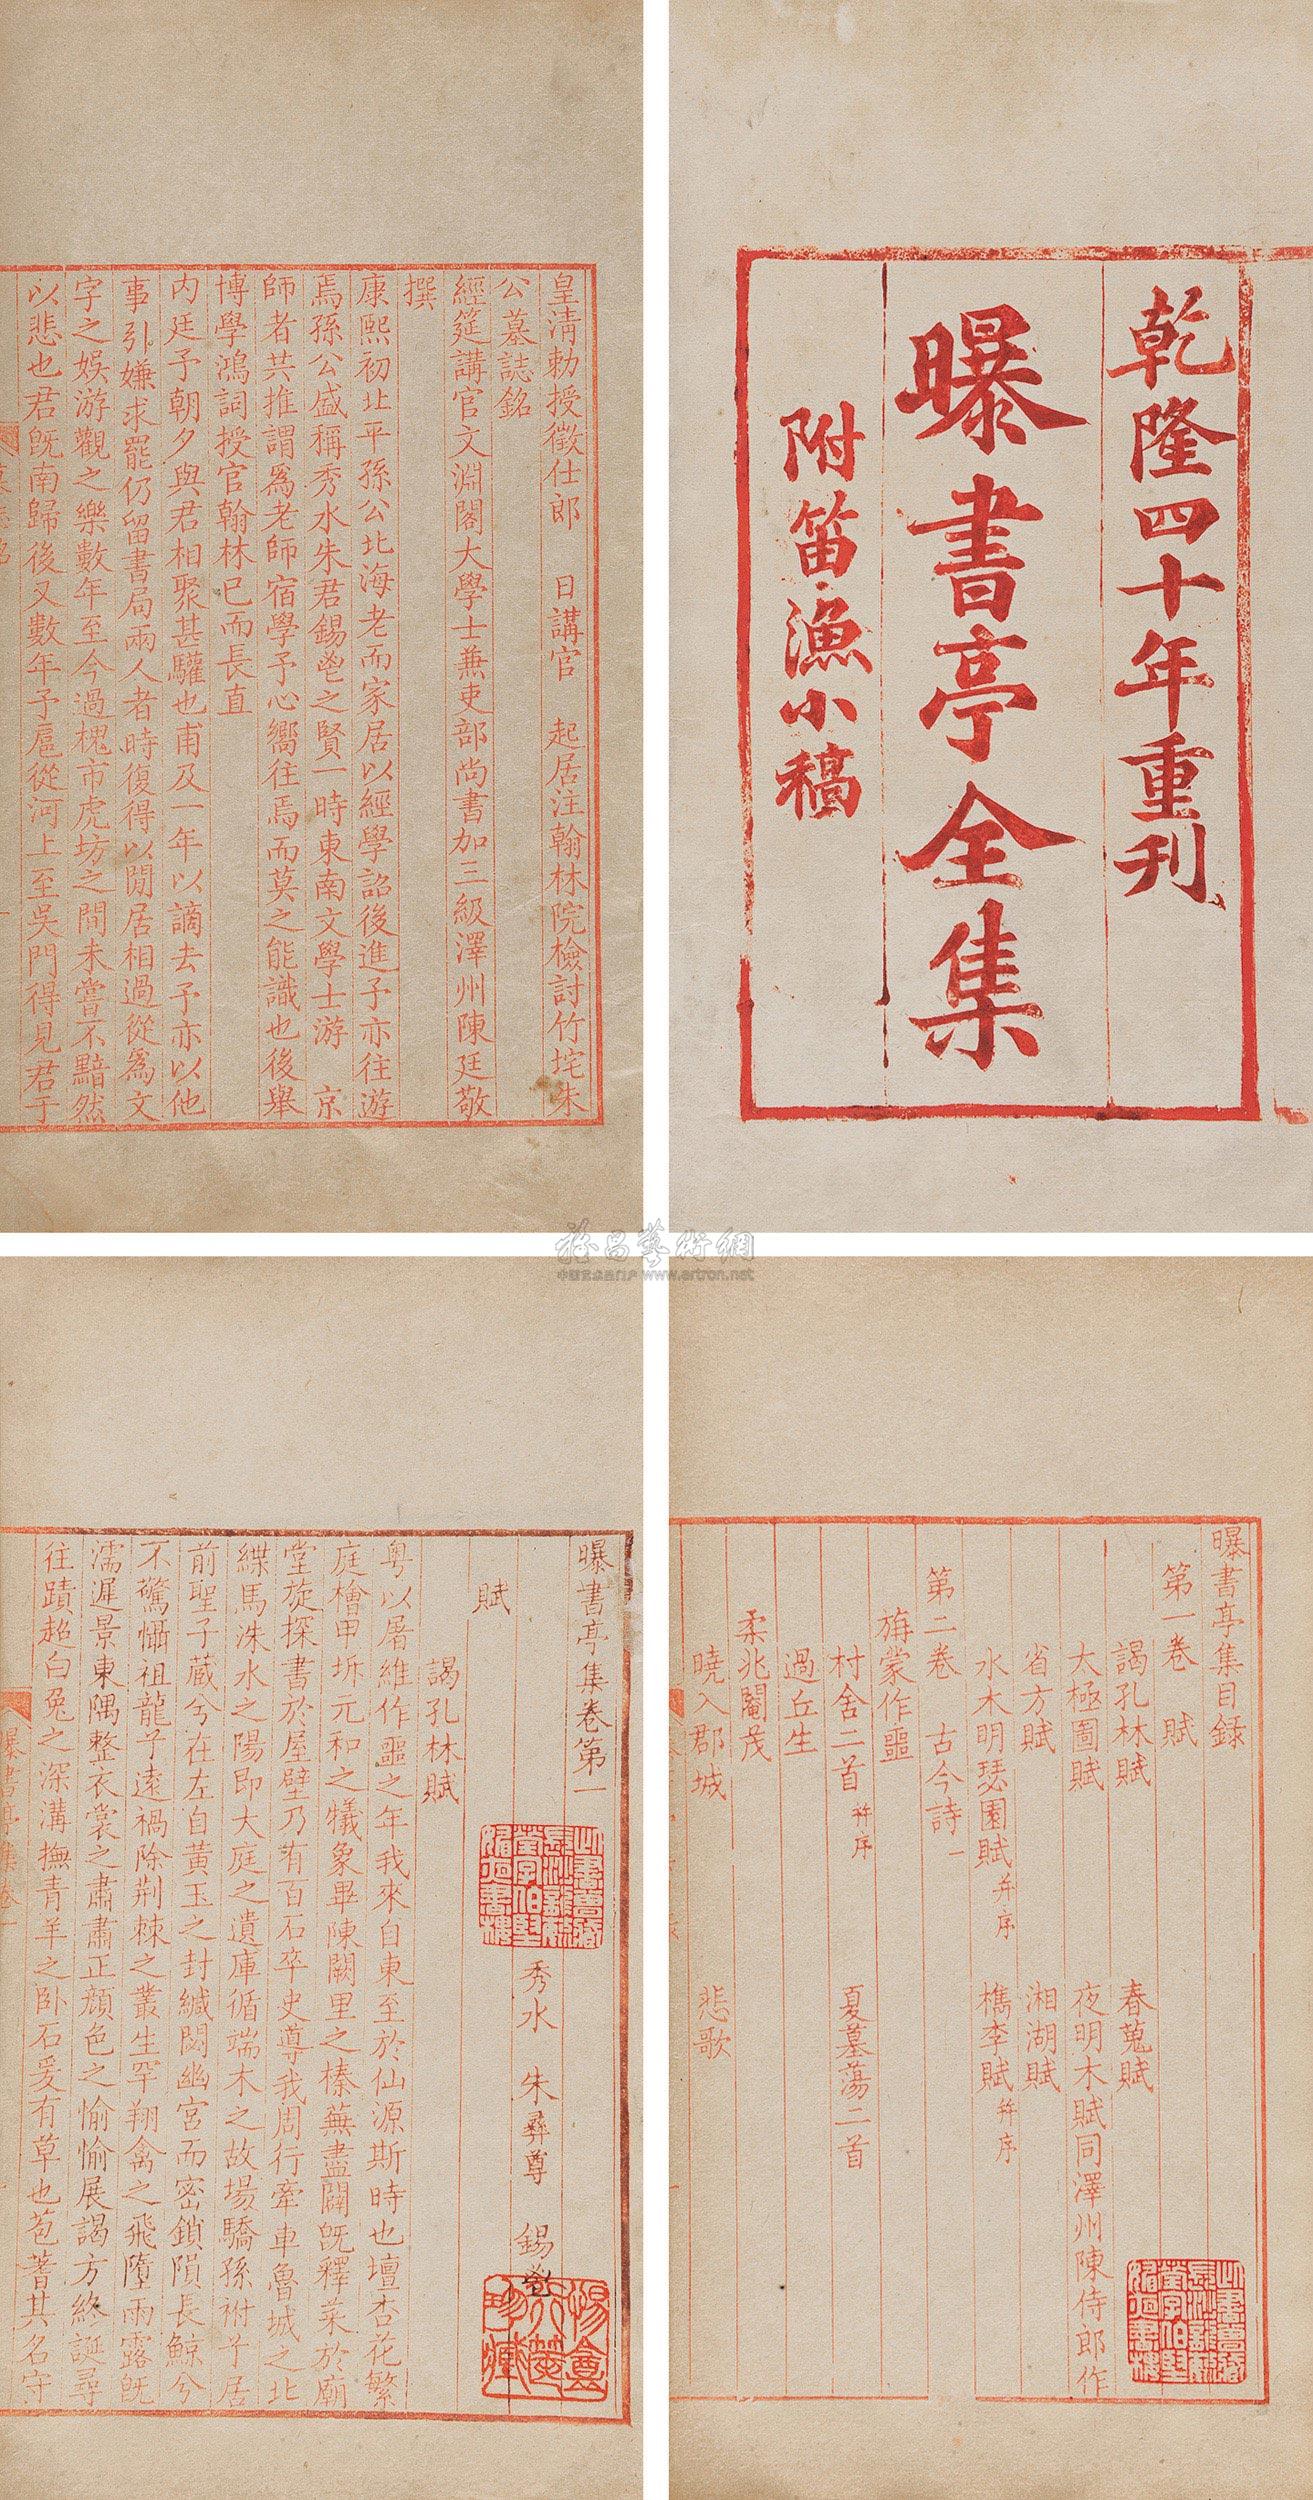 乾隆四十年重刊
曝書亭全集
附笛漁小稿
皇清勅授徵仕郎　日講官　起居注翰林院檢討竹垞朱
公墓誌銘
經筵講官文淵閣大學士兼吏部尚書加三級澤州陳廷敬
撰
康熙初北平孫公北海老而家居以經學詔後進予亦往遊
焉孫公盛稱秀水朱君錫鬯之賢一時東南文學士游　京
師者共推謂爲老師宿學予心嚮往焉而莫之能識也後舉
博學鴻詞授官翰林已而長直
内廷予朝夕與君相聚甚驩也甫及一年以謫去予亦以他
事引嫌求罷仍留書局兩人者時復得以閒居相過從爲文
字之娛游觀之樂數年至今過槐市虎坊之間未嘗不黯然
以悲也君既南歸後又數年予扈從河上至吳門得見君于
曝書亭集目録
第一卷　賦
謁孔林賦　春蒐賦
太極圖賦　夜明木賦同澤州陳侍郎作
省方賦　湘湖賦
水木明瑟園賦并序　檇李賦并序
第二卷　古今詩一
旃蒙作噩
村舍二首并序　夏墓蕩二首
過丘生
柔兆閹茂
曉入郡城　悲歌
曝書亭集卷第一
秀水　朱彝尊　錫鬯
賦
謁孔林賦
粵以屠維作噩之年我來自東至於仙源斯時也壇杏花繁
庭檜甲坼元和之犧象畢陳闕里之榛蕪盡闢既釋菜於廟
堂旋探書於屋壁乃有百石卒史導我周行牽車魯城之北
緤馬洙水之陽即大庭之遺庫循端木之故場驕孫祔子居
前聖子藏兮在左自黃玉之封緘閟幽宮而密鎖隕長鯨兮
不驚慴祖龍子遠禍除荆棘之叢生罕翔禽之飛墮雨露既
濡遲景東隅整衣裳之肅肅正顔色之愉愉展謁方終誕尋
往蹟超白兔之深溝撫青羊之卧石爰有草也苞蓍其名守
曝書亭集卷一
雅昌藝術網
中国艺术品门户 www.artron.net